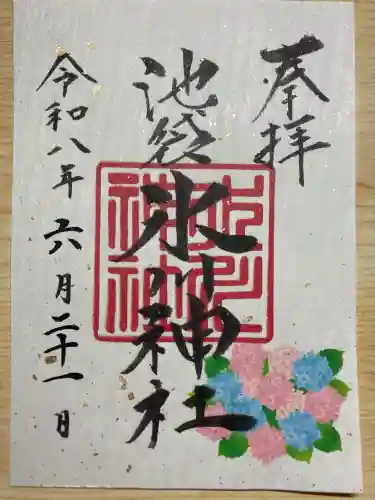 奉拝
池袋氷川神社
令和八年六月二十一日